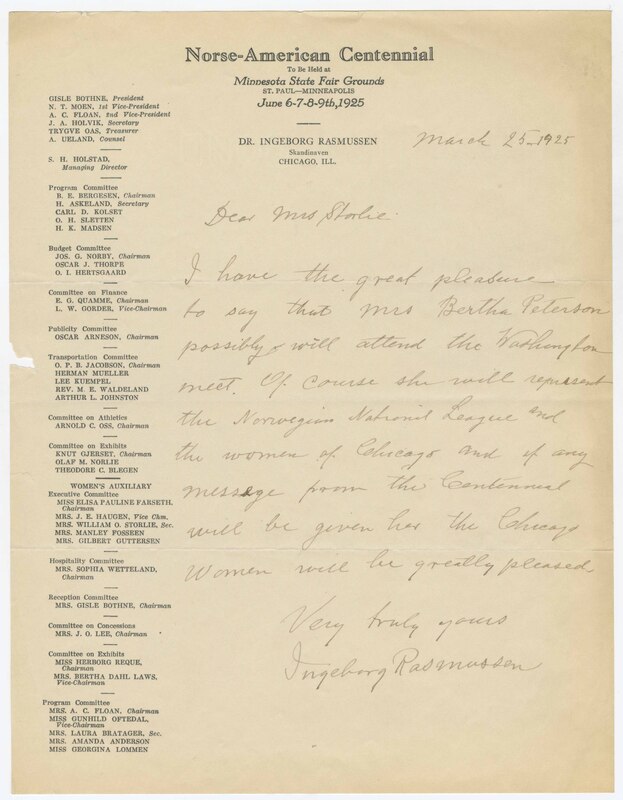 Norse-American Centennial
To Be Held at
Minnesota State Fair Grounds
ST. PAUL—MINNEAPOLIS
June 6-7-8-9th, 1925
DR. INGEBORG RASMUSSEN
Skandinaven
CHICAGO, ILL.
March 25-1925
GISLE BOTHNE, President
N. T. MOEN, 1st Vice-President
A. C. FLOAN, 2nd Vice-President
J. A. HOLVIK, Secretary
TRYGVE OAS, Treasurer
A. UELAND, Counsel
S. H. HOLSTAD,
Managing Director
Program Committee
B. E. BERGESEN, Chairman
H. ASKELAND, Secretary
CARL D. KOLSET
O. H. SLETTEN
H. K. MADSEN
Budget Committee
JOS. G. NORBY, Chairman
OSCAR J. THORPE
O. I. HERTSGAARD
Committee on Finance
E. G. QUAMME, Chairman
L. W. GORDER, Vice-Chairman
Publicity Committee
OSCAR ARNESON, Chairman
Transportation Committee
O. P. B. JACOBSON, Chairman
HERMAN MUELLER
LEE KUEMPEL
REV. M. E. WALDELAND
ARTHUR L. JOHNSTON
Committee on Athletics
ARNOLD C. OSS, Chairman
Committee on Exhibits
KNUT GJERSET, Chairman
OLAF M. NORLIE
THEODORE C. BLEGEN
WOMEN'S AUXILIARY
Executive Committee
MISS ELISA PAULINE FARSETH,
Chairman
MRS. J. E. HAUGEN, Vice Chm.
MRS. WILLIAM O. STORLIE, Sec.
MRS. MANLEY FOSSEEN
MRS. GILBERT GUTTERSEN
Hospitality Committee
MRS. SOPHIA WETTELAND,
Chairman
Reception Committee
MRS. GISLE BOTHNE, Chairman
Committee on Concessions
MRS. J. O. LEE, Chairman
Committee on Exhibits
MISS HERBORG REQUE,
Chairman
MRS. BERTHA DAHL LAWS,
Vice-Chairman
Program Committee
MRS. A. C. FLOAN, Chairman
MISS GUNHILD OFTEDAL,
Vice-Chairman
MRS. LAURA BRATAGER, Sec.
MRS. AMANDA ANDERSON
MISS GEORGINA LOMMEN
Dear Mrs Storlie.
I have the great pleasure
to say that Mrs Bertha Peterson
possibly will attend the Washington
meet. Of course she will represent
the Norwegian National League and
the women of Chicago and if any
message from the Centennial
will be given her the Chicago
Women will be greatly pleased
Very truly yours
Ingeborg Rasmussen